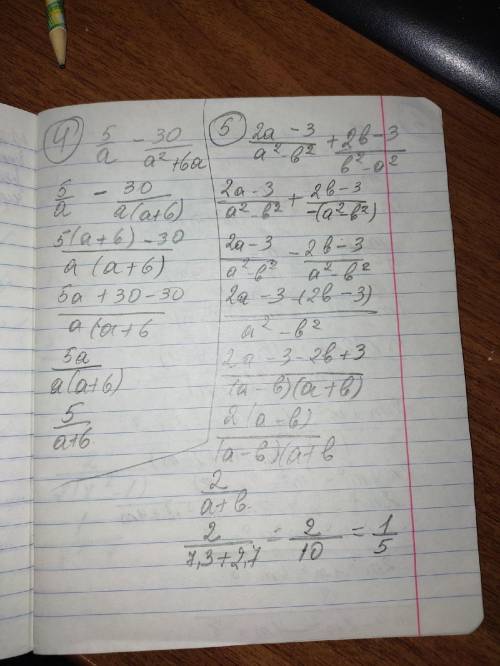 ④ 5/a - 30/(a²+6a)
5/a - 30/(a(a+6))
(5(a+6)-30)/(a(a+6))
(5a+30-30)/(a(a+6
5a/(a(a+6))
5/(a+6)
⑤ (2a-3)/(a²-b²) + (2b-3)/(b²-a²)
(2a-3)/(a²-b²) + (2b-3)/(-(a²-b²))
(2a-3)/(a²-b²) - (2b-3)/(a²-b²)
(2a-3-(2b-3))/(a²-b²)
(2a-3-2b+3)/((a-b)(a+b))
2(a-b)/((a-b)(a+b
2/(a+b)
2/(7,3+2,7) = 2/10 = 1/5